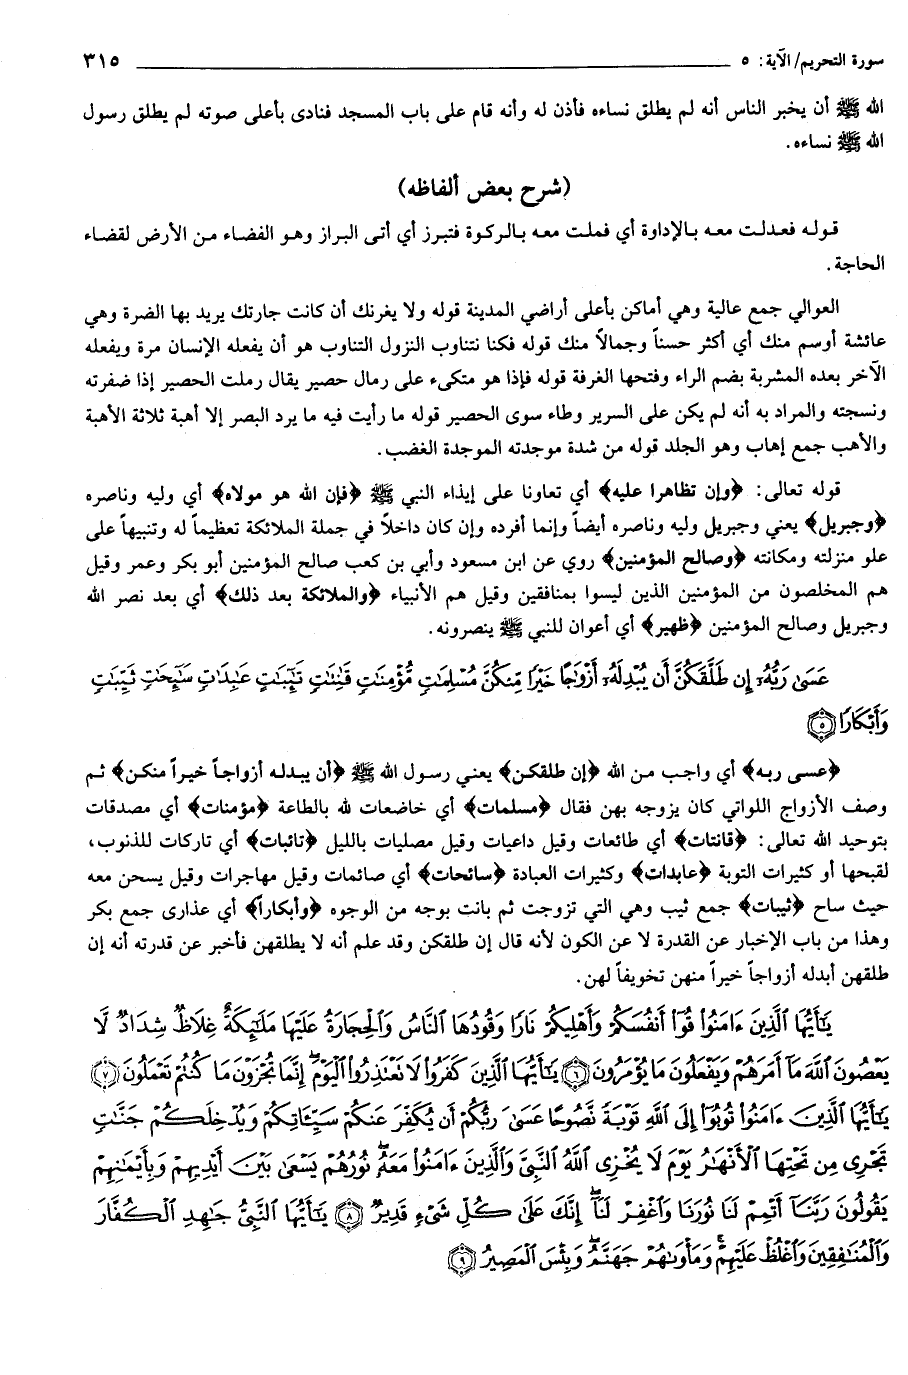 سورة التحريم/ الآية: ٥ ٣١٥
الله ﷺ أن يخبر الناس أنه لم يطلق نساءه فأذن له وأنه قام على باب المسجد فنادى بأعلى صوته لم يطلق رسول
الله ﷺ نساءه.
(شرح بعض ألفاظه)
قوله فعدلت معه بالإداوة أي فملت معه بالركوة فتبرز أي أتى البراز وهو الفضاء من الأرض لقضاء
الحاجة.
العوالي جمع عالية وهي أماكن بأعلى أراضي المدينة قوله ولا يغرنك أن كانت جارتك يريد بها الضرة وهي
عائشة أوسم منك أي أكثر حسناً وجمالاً منك قوله فكنا نتناوب النزول التناوب هو أن يفعله الإنسان مرة ويفعله
الآخر بعده المشربة بضم الراء وفتحها الغرفة قوله فإذا هو متكىء على رمال حصير يقال رملت الحصير إذا ضفرته
ونسجته والمراد به أنه لم يكن على السرير وطاء سوى الحصير قوله ما رأيت فيه ما يرد البصر إلا أهبة ثلاثة الأهبة
والأهب جمع إهاب وهو الجلد قوله من شدة موجدته الموجدة الغضب.
قوله تعالى: ﴿وإن تظاهرا عليه﴾ أي تعاونا على إيذاء النبي ﷺ ﴿فإن الله هو مولاه﴾ أي وليه وناصره
﴿وجبريل﴾ يعني وجبريل وليه وناصره أيضاً وإنما أفرده وإن كان داخلاً في جملة الملائكة تعظيماً له وتنبيهاً على
علو منزلته ومكانته ﴿وصالح المؤمنين﴾ روي عن ابن مسعود وأبي بن كعب صالح المؤمنين أبو بكر وعمر وقيل
هم المخلصون من المؤمنين الذين ليسوا بمنافقين وقيل هم الأنبياء ﴿والملائكة بعد ذلك﴾ أي بعد نصر الله
وجبريل وصالح المؤمنين ﴿ظهير﴾ أي أعوان للنبي ﷺ ينصرونه.
عَسَىٰ رَبُّهُۥٓ إِن طَلَّقَكُنَّ أَن يُبْدِلَهُۥٓ أَزْوَٰجًا خَيْرًا مِّنكُنَّ مُسْلِمَٰتٍ مُّؤْمِنَٰتٍ قَٰنِتَٰتٍ تَٰٓئِبَٰتٍ عَٰبِدَٰتٍ سَٰٓئِحَٰتٍ ثَيِّبَٰتٍ
وَأَبْكَارًا ۝٥
﴿عسى ربه﴾ أي واجب من الله ﴿إن طلقكن﴾ يعني رسول الله ﷺ ﴿أن يبدله أزواجاً خيراً منكن﴾ ثم
وصف الأزواج اللواتي كان يزوجه بهن فقال ﴿مسلمات﴾ أي خاضعات لله بالطاعة ﴿مؤمنات﴾ أي مصدقات
بتوحيد الله تعالى: ﴿قانتات﴾ أي طائعات وقيل داعيات وقيل مصليات بالليل ﴿تائبات﴾ أي تاركات للذنوب،
لقبحها أو كثيرات التوبة ﴿عابدات﴾ وكثيرات العبادة ﴿سائحات﴾ أي صائمات وقيل مهاجرات وقيل يسحن معه
حيث ساح ﴿ثيبات﴾ جمع ثيب وهي التي تزوجت ثم بانت بوجه من الوجوه ﴿وأبكاراً﴾ أي عذارى جمع بكر
وهذا من باب الإخبار عن القدرة لا عن الكون لأنه قال إن طلقكن وقد علم أنه لا يطلقهن فأخبر عن قدرته أنه إن
طلقهن أبدله أزواجاً خيراً منهن تخويفاً لهن.
يَٰٓأَيُّهَا ٱلَّذِينَ ءَامَنُوا۟ قُوٓا۟ أَنفُسَكُمْ وَأَهْلِيكُمْ نَارًا وَقُودُهَا ٱلنَّاسُ وَٱلْحِجَارَةُ عَلَيْهَا مَلَٰٓئِكَةٌ غِلَاظٌ شِدَادٌ لَّا
يَعْصُونَ ٱللَّهَ مَآ أَمَرَهُمْ وَيَفْعَلُونَ مَا يُؤْمَرُونَ ۝٦ يَٰٓأَيُّهَا ٱلَّذِينَ كَفَرُوا۟ لَا تَعْتَذِرُوا۟ ٱلْيَوْمَ ۖ إِنَّمَا تُجْزَوْنَ مَا كُنتُمْ تَعْمَلُونَ ۝٧
يَٰٓأَيُّهَا ٱلَّذِينَ ءَامَنُوا۟ تُوبُوٓا۟ إِلَى ٱللَّهِ تَوْبَةً نَّصُوحًا عَسَىٰ رَبُّكُمْ أَن يُكَفِّرَ عَنكُمْ سَيِّـَٔاتِكُمْ وَيُدْخِلَكُمْ جَنَّٰتٍ
تَجْرِى مِن تَحْتِهَا ٱلْأَنْهَٰرُ يَوْمَ لَا يُخْزِى ٱللَّهُ ٱلنَّبِىَّ وَٱلَّذِينَ ءَامَنُوا۟ مَعَهُۥ ۖ نُورُهُمْ يَسْعَىٰ بَيْنَ أَيْدِيهِمْ وَبِأَيْمَٰنِهِمْ
يَقُولُونَ رَبَّنَآ أَتْمِمْ لَنَا نُورَنَا وَٱغْفِرْ لَنَآ ۖ إِنَّكَ عَلَىٰ كُلِّ شَىْءٍ قَدِيرٌ ۝٨ يَٰٓأَيُّهَا ٱلنَّبِىُّ جَٰهِدِ ٱلْكُفَّارَ
وَٱلْمُنَٰفِقِينَ وَٱغْلُظْ عَلَيْهِمْ ۚ وَمَأْوَىٰهُمْ جَهَنَّمُ ۖ وَبِئْسَ ٱلْمَصِيرُ ۝٩